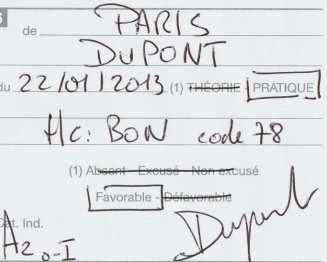 de PARIS
DUPONT
du 22/01/2013 (1) THÉORIE - PRATIQUE
H/c: BON code 78
(1) Absent - Excusé - Non excusé
Favorable - Défavorable
Cat. Ind.
A2 0-I Dupont